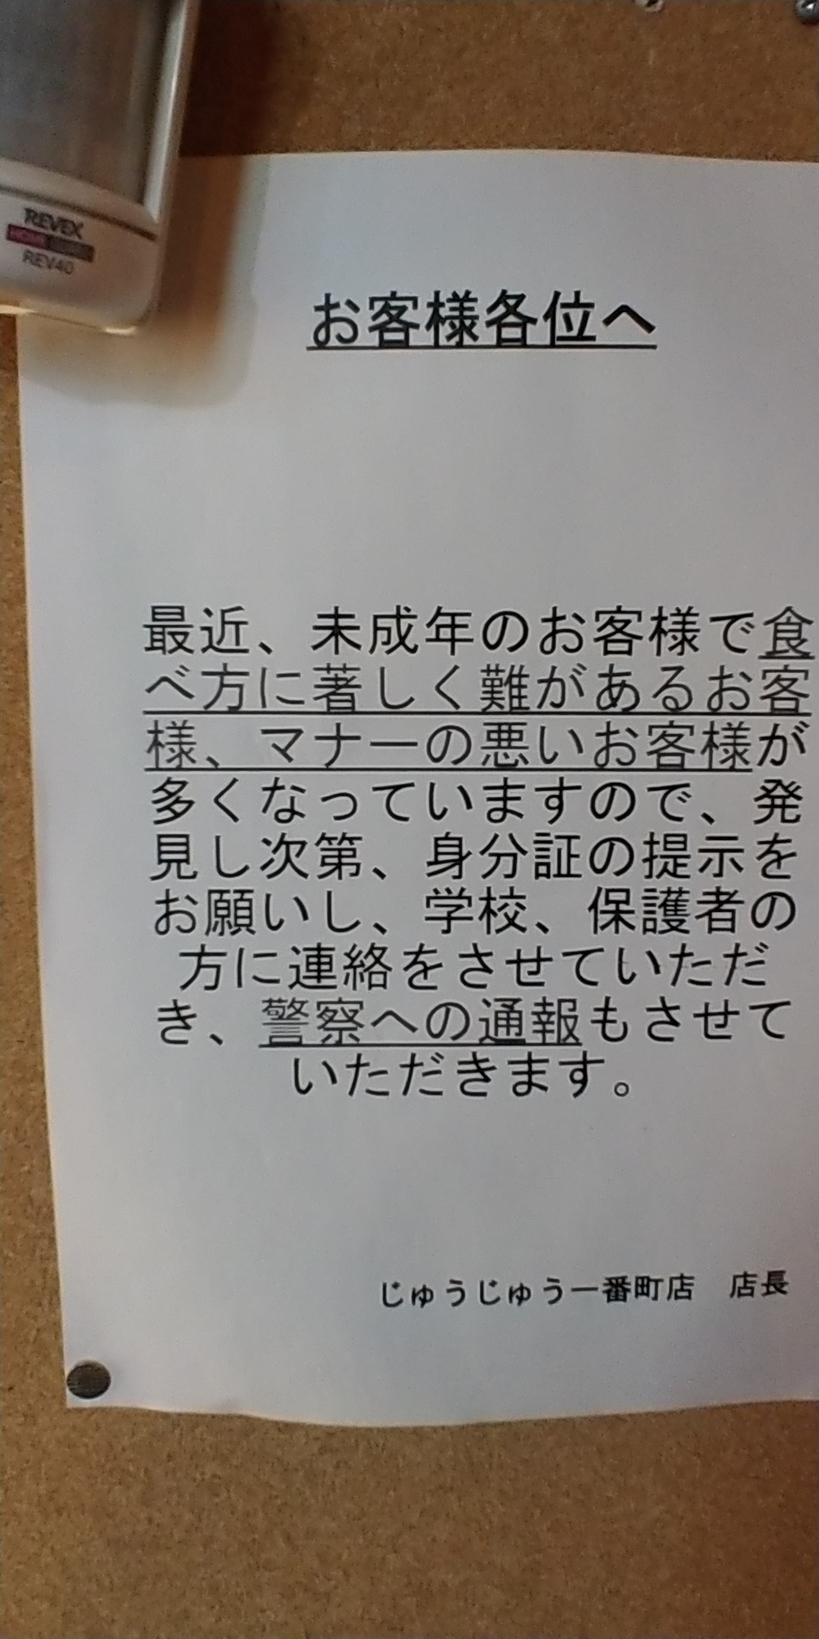 REVEX
HOME
REV40
お客様各位へ
最近、未成年のお客様で食
べ方に著しく難があるお客
様、マナーの悪いお客様が
多くなっていますので、発
見し次第、身分証の提示を
お願いし、学校、保護者の
方に連絡をさせていただ
き、警察への通報もさせて
いただきます。
じゅうじゅう一番町店　店長